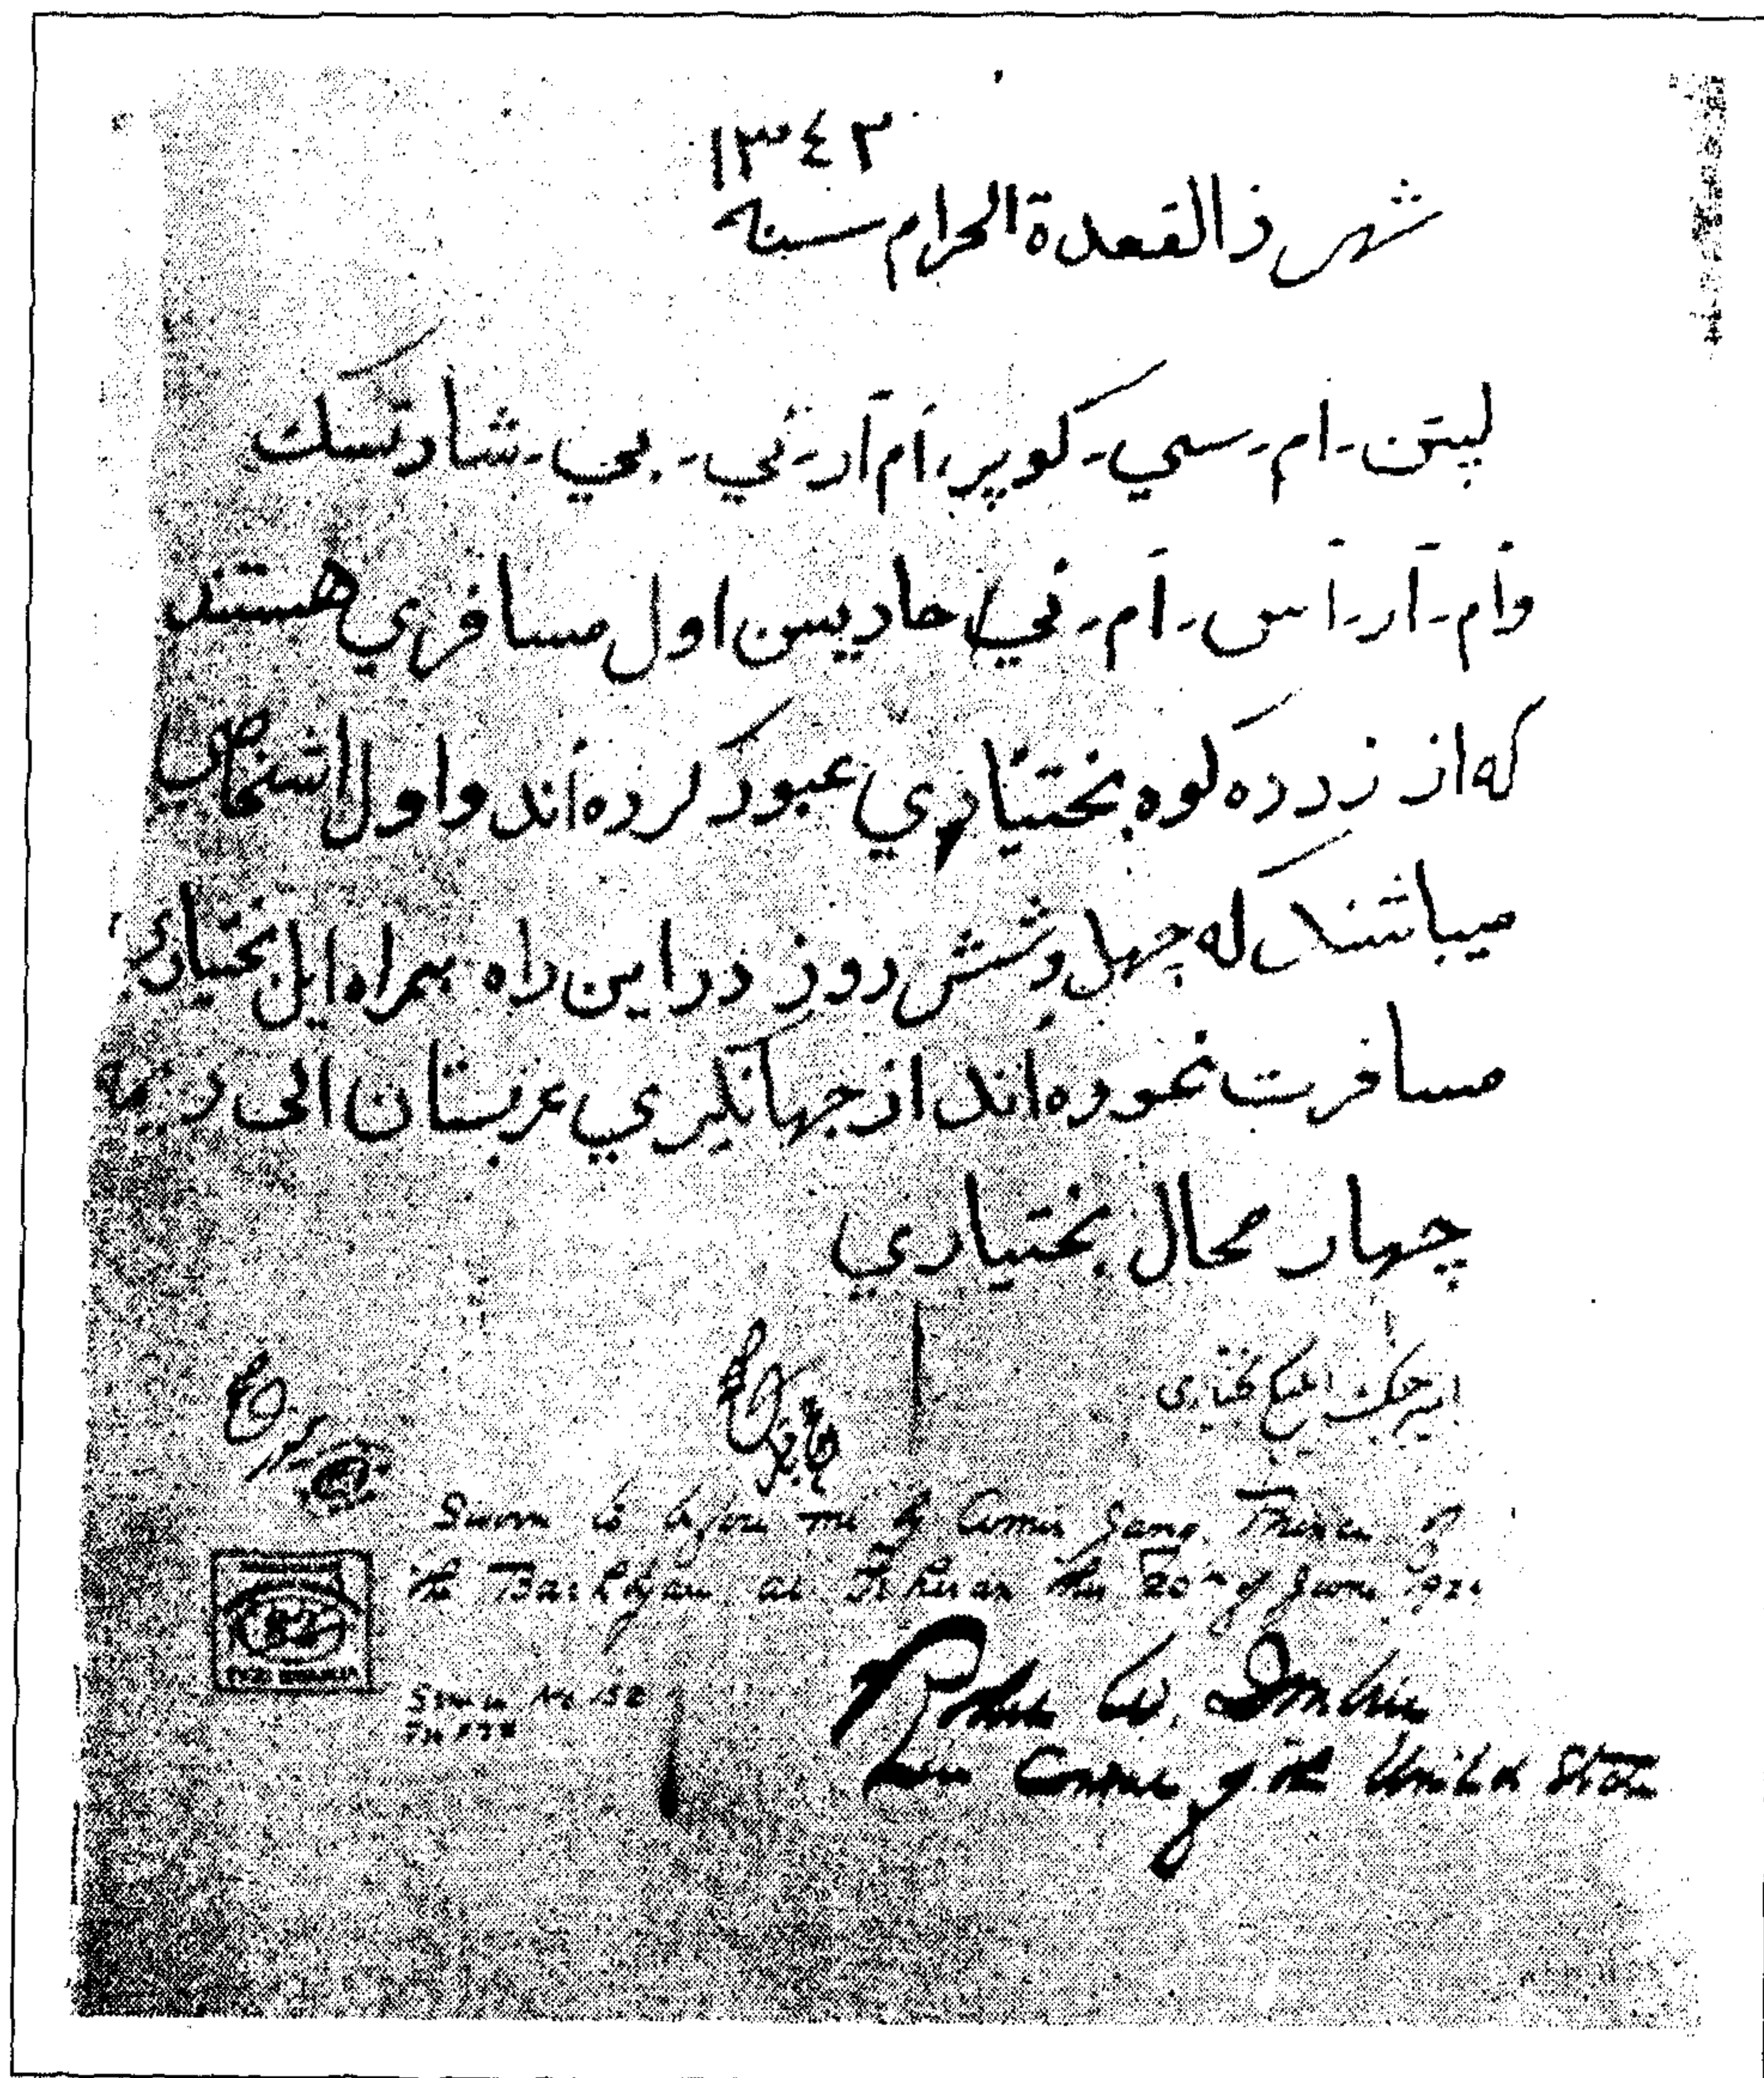 ١٣٤٢
شهر ذالقعدة الحرام سنه
كپتن - ام - سي - كوپر، ام آر - ئي - بي - شادسك
وام - آر - اس - ام - ئي هاريسن اول مسافري هستند
كه از زرده كوه بختياري عبور كرده اند و اول اشخاصي
ميباشند كه چهل و شش روز در اين راه بهمراه ايل بختياري
مسافرت نموده اند از جهانگيري عربستان الى
چهار محال بختياري
امير جنگ بختياري
Sworn to before me by Amir Jang, Prince of
the Bakhtyari at Teheran this 20th of June
Robert W. Imbrie
Vice Consul of the United States